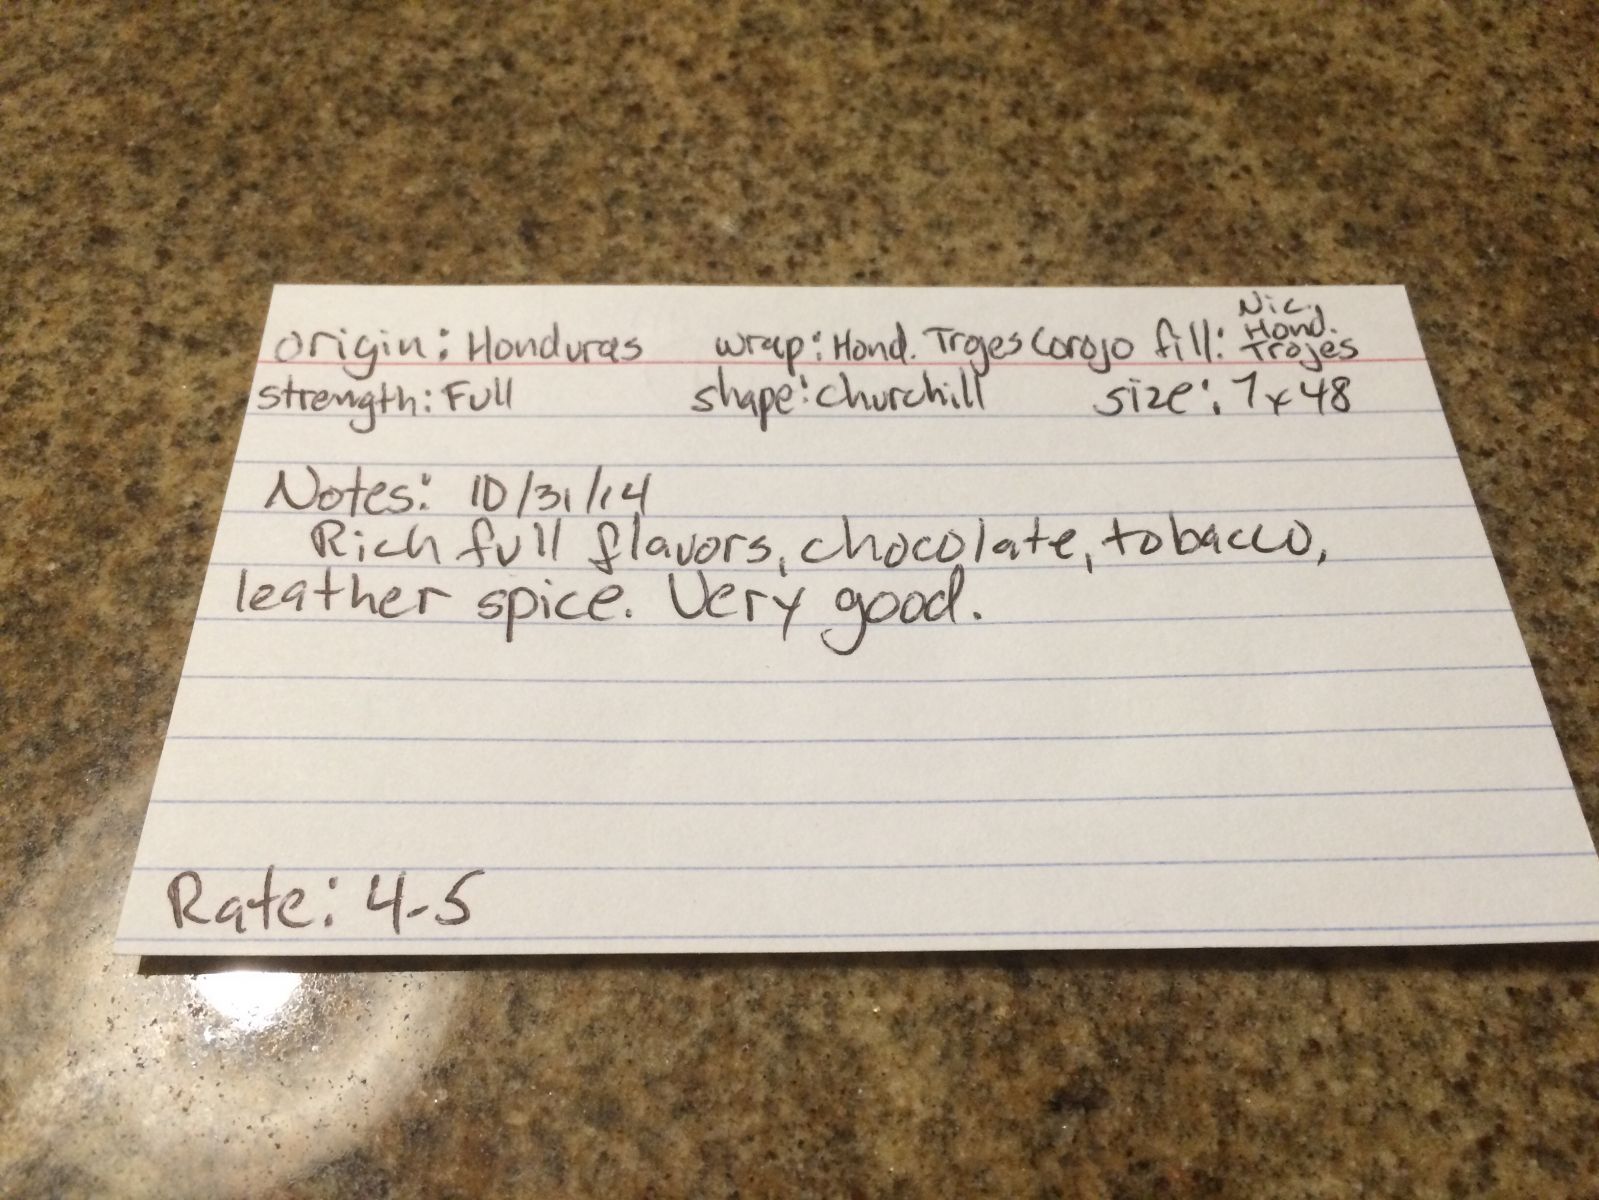 origin: Honduras wrap: Hond. Trojes Corojo fill: Nic, Hond. Trojes
strength: Full shape: churchill size: 7x48
Notes: 10/31/14
Rich full flavors, chocolate, tobacco,
leather spice. Very good.
Rate: 4-5